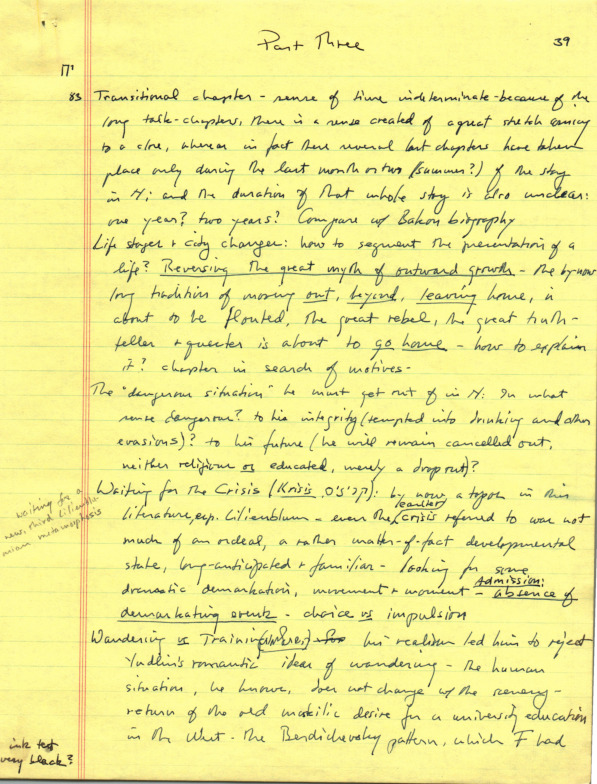 Part Three
39
י"ח
83 Transitional chapter - sense of time indeterminate - because of the
long task-chapters, there is a sense created of a great stretch coming
to a close, whereas in fact these several last chapters have taken
place only during the last month or two (summer?) of the stay
in H; and the duration of that whole stay is also unclear:
one year? two years? Compare w/ Bakon biography
Life stages + city changes: how to segment the presentation of a
life? Reversing the great myth of outward growth - the by-now
long tradition of moving out, beyond, leaving home, is
about to be flouted, the great rebel, the great truth-
teller + quester is about to go home - how to explain
it? chapter in search of motives -
The "dangerous situation" he must get out of in H: In what
sense dangerous? to his integrity (tempted into drinking and other
evasions)? to his future (he will remain cancelled out,
neither religious or educated, merely a dropout)?
Waiting for the Crisis (Krisis, קריסיס): by now a topos in this
literature, esp. Lilienblum - even the earlier crisis referred to was not
much of an ordeal, a rather matter-of-fact developmental
state, long-anticipated + familiar - looking for some
dramatic demarkation, movement + moment - Admission: absence of
demarkating events - choice vs impulsion
waiting for a
new, third Lilienblu-
mian metamorphosis
Wandering vs Training his realism led him to reject
Yudlin's romantic ideas of wandering - the human
situation, he knows, does not change w/ the scenery -
return of the old maskilic desire for a university education
in the West - the Berdichevsky pattern, which F had
ink test
very black?